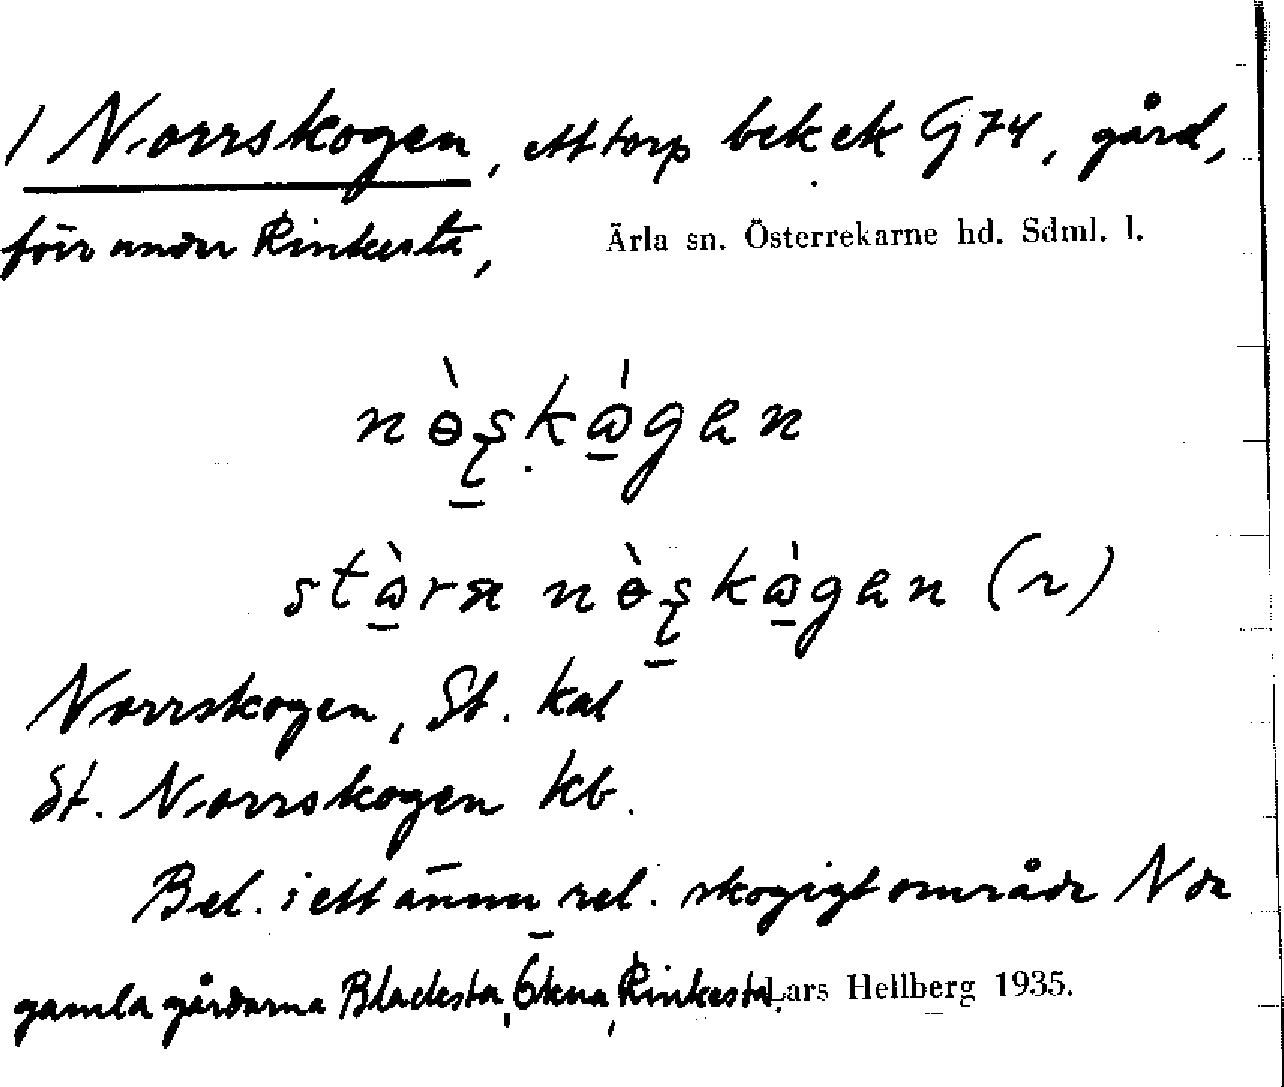 1 Norrskogen, ett torp bek ek G 74, gård,
förr under Rinkesta, Ärla sn. Österrekarne hd. Sdml. l.
nò̱s̨kɷ́gən
stɷ̀ra nòs̨kɷ́gən (r)
Norrskogen, St. kal
St. Norrskogen kb.
Bel. i ett ännu rel. skogigt område N de
gamla gårdarna Blacksta, Ökna, Rinkesta.
Lars Hellberg 1935.